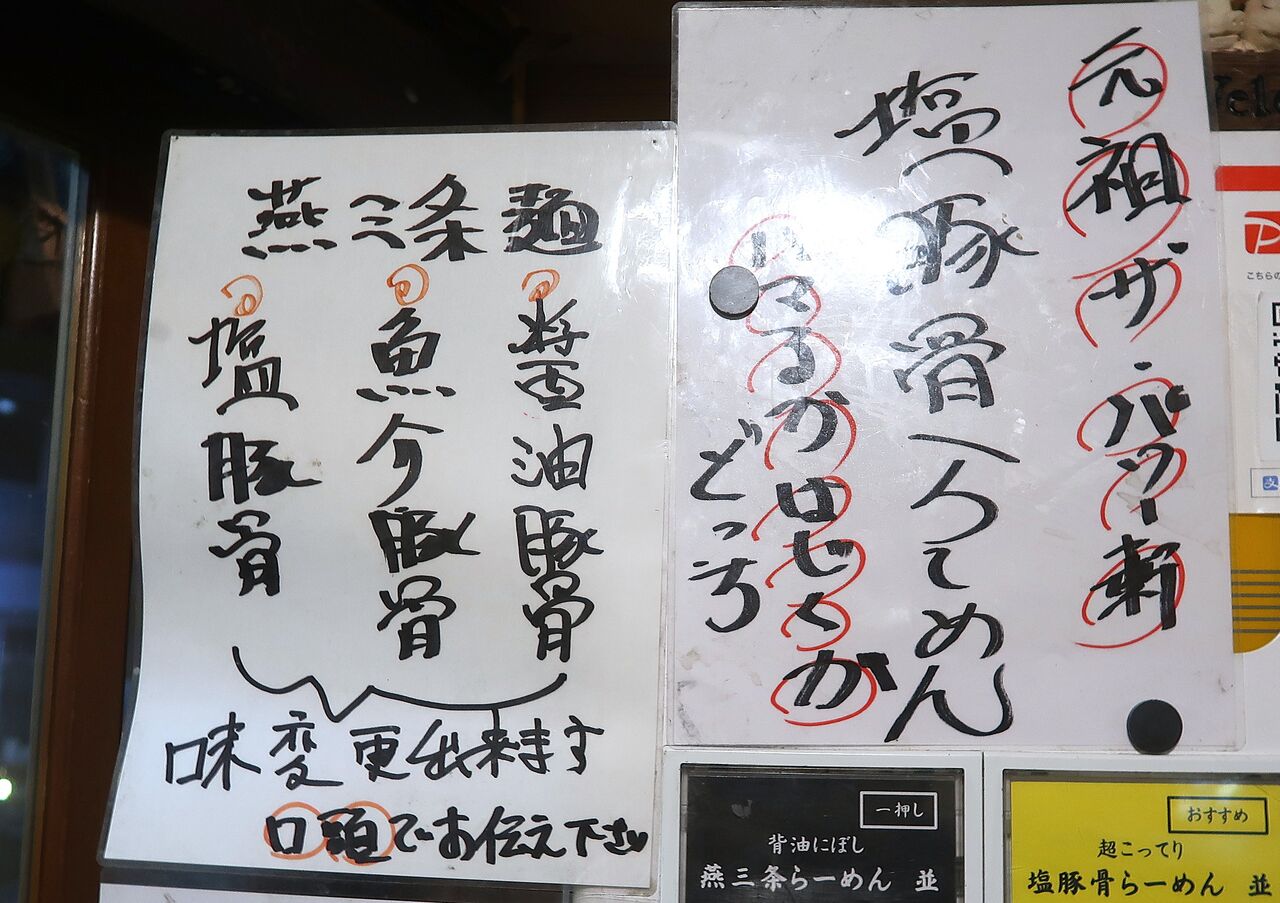 元祖ザ・パワー軒
塩豚骨らーめん
はまるか
はじくか
どっち
燕三条麺
醤油豚骨
魚介豚骨
塩豚骨
味変更出来ます
口頭でお伝え下さい
一押し
背油にぼし
燕三条らーめん 並
おすすめ
超こってり
塩豚骨らーめん 並
こちらの